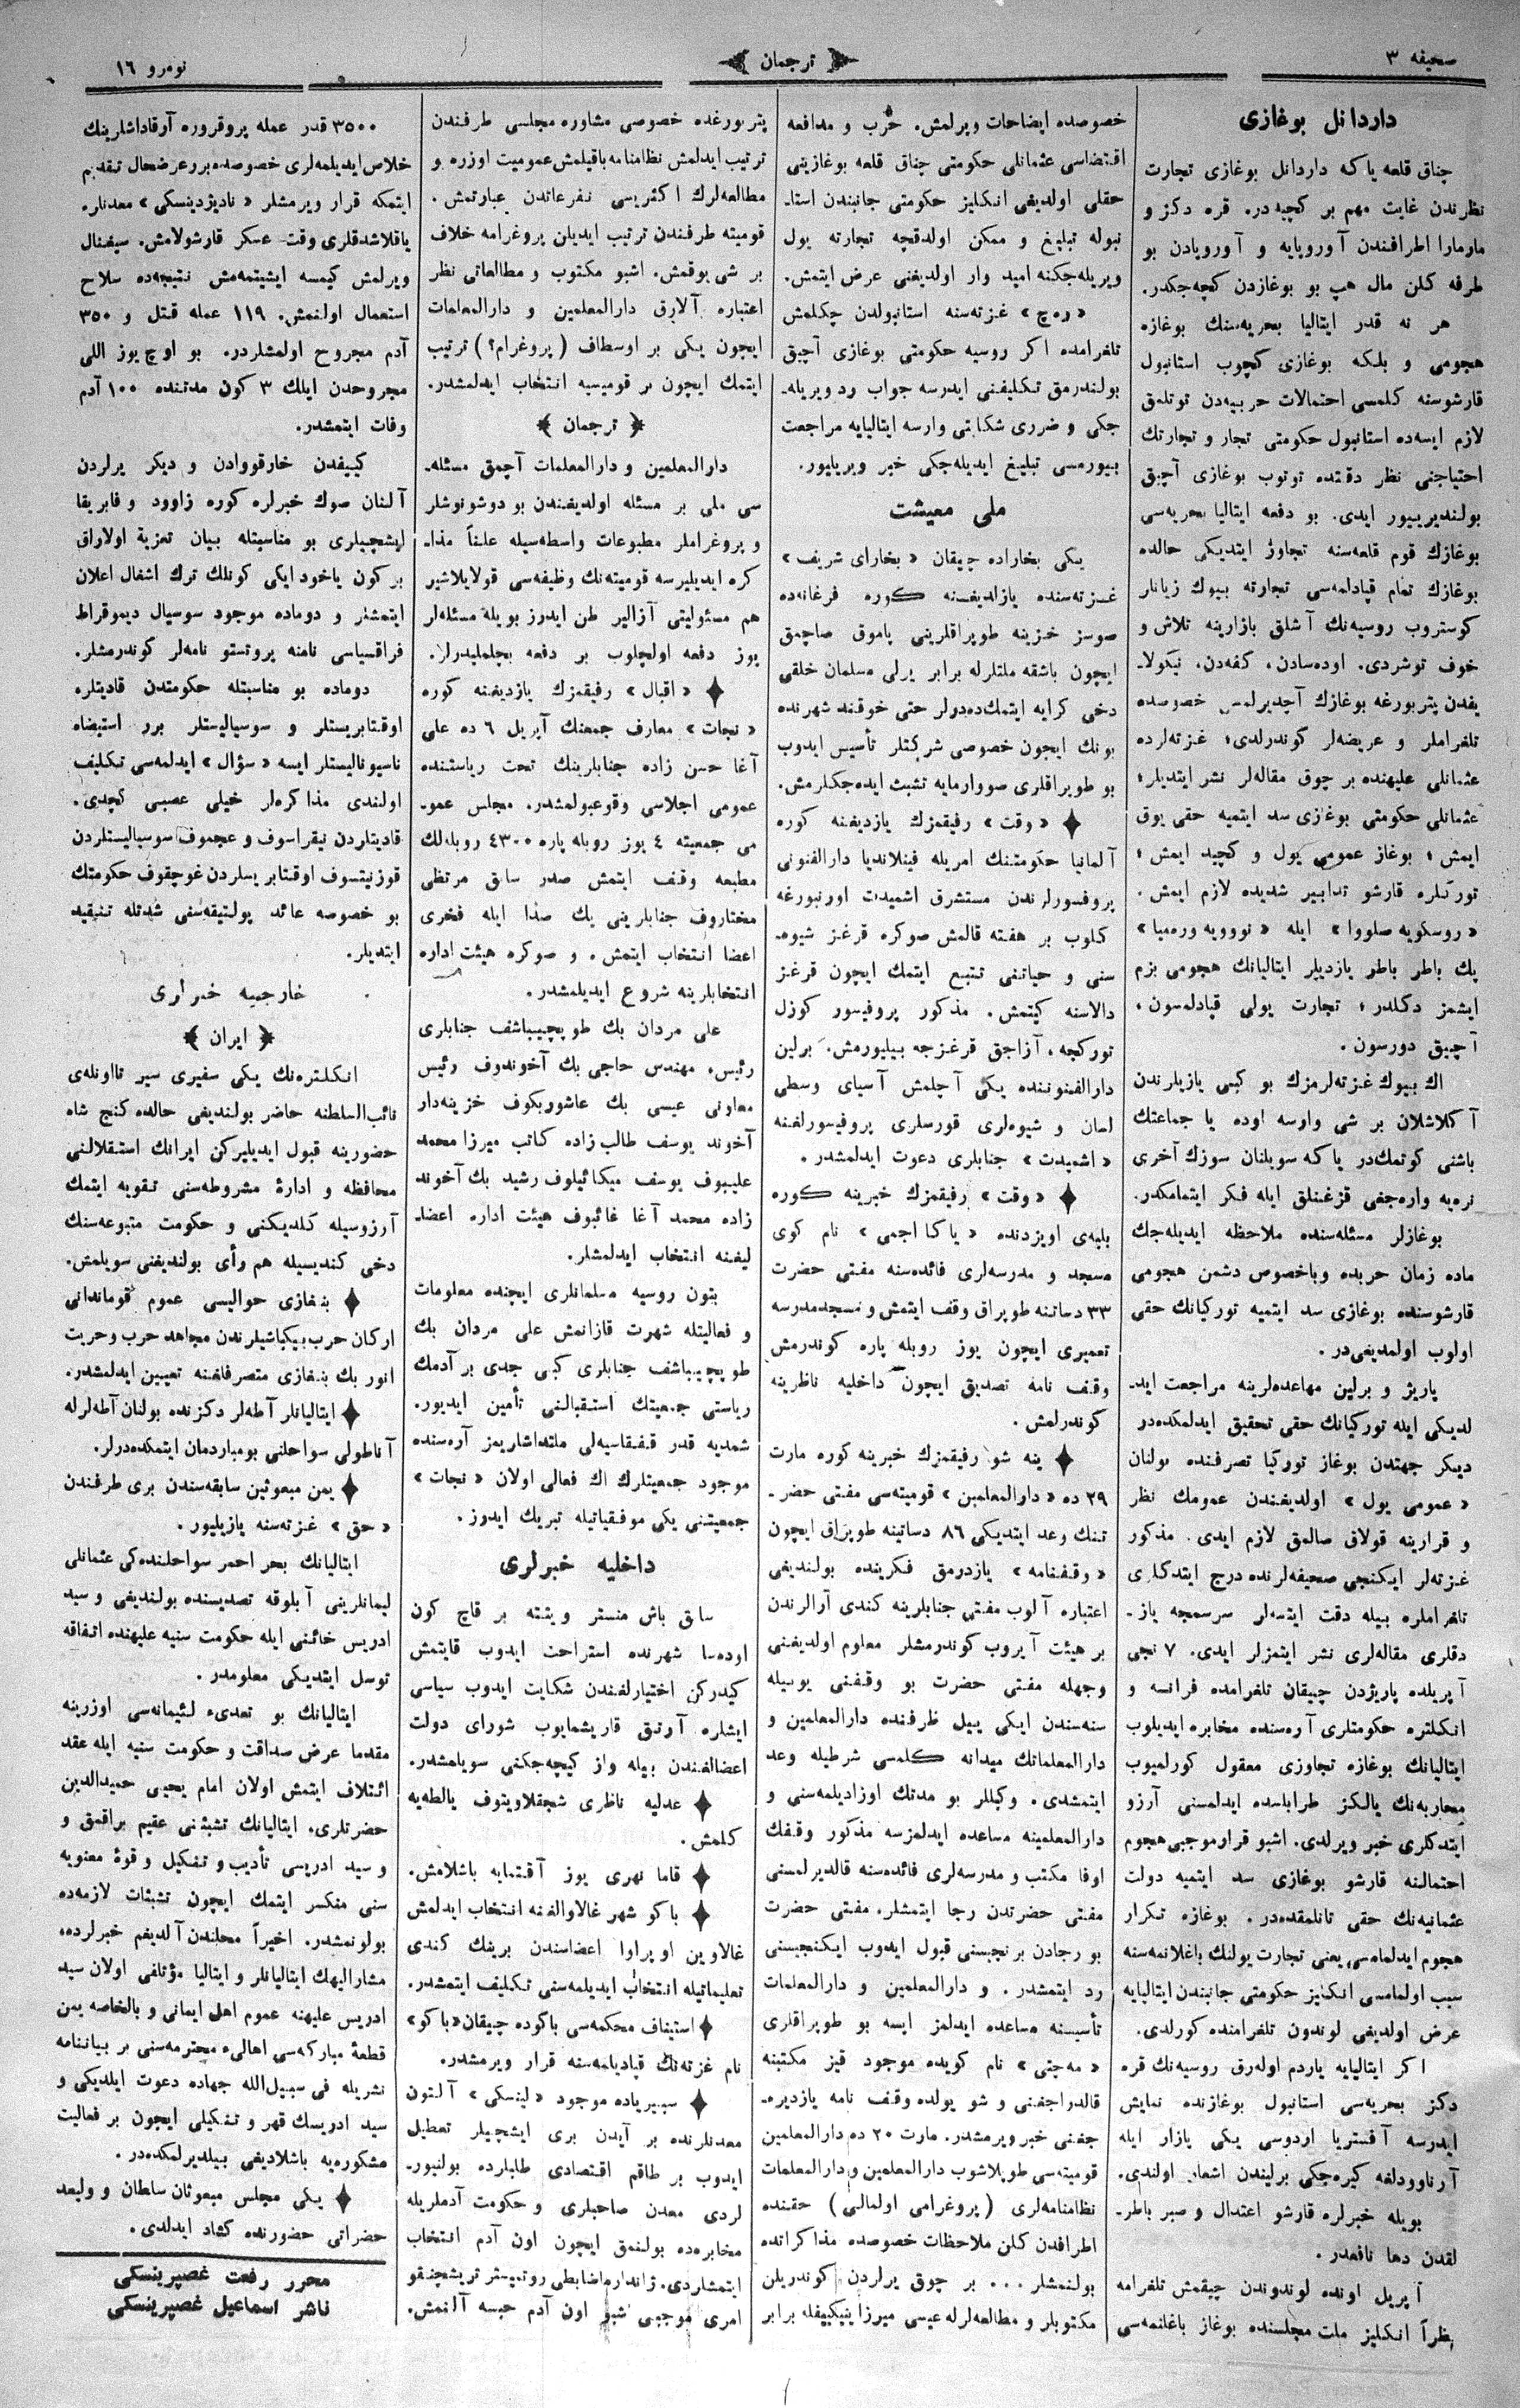 صحیفه ۳
ترجمان
نومرو ۱۶
داردانل بوغازی
چناق قلعه یا که داردانل بوغازی تجارت
نظرندن غایت مهم بر کچیددر. قره دکز و
مارمارا اطرافندن آوروپایه و آوروپادن بو
طرفه کلن مال هپ بو بوغازدن کچه‌جکدر.
هر نه قدر ایتالیا بحریه‌سنك بوغازه
هجومی و بلکه بوغازی کچوب استانبول
قارشوسنه کلمسی احتمالات حربیه‌دن توتلمق
لازم ایسه‌ده استانبول حکومتی تجار و تجارتك
احتیاجنی نظر دقتده توتوب بوغازی آچیق
بولندیرییور ایدی. بو دفعه ایتالیا بحریه‌سی
بوغازك قوم قلعه‌سنه تجاوز ایتدیکی حالده
بوغازك تمام قپادلمه‌سی تجارته بیوك زیانلر
کوستروب روسیه‌نك آشلق بازارینه تلاش و
خوف توشردی. اوده‌سادن، کفه‌دن، نیکولا-
یفدن پتربورغه بوغازك آچدیرلمسی خصوصده
تلغراملر و عریضه‌لر کوندرلدی؛ غزته‌لرده
عثمانلی علیهنده بر چوق مقاله‌لر نشر ایتدیلر؛
عثمانلی حکومتی بوغازی سد ایتمیه حقی یوق
ایمش؛ بوغاز عمومی یول و کچید ایمش؛
تورکلره قارشو تدابیر شدیده لازم ایمش.
«روسکویه صلووا» ایله «نوویه ورەمیا»
پك باطر باطر یازدیلر ایتالیانك هجومی بزم
ایشمز دکلدر؛ تجارت یولی قپادلمسون،
آچیق دورسون.
اك بیوك غزته‌لرمزك بو کبی یازیلرندن
آکلاشلان بر شی وارسه اوده یا جماعتك
باشنی کوتمك‌در یا که سویلنان سوزك آخری
نره‌یه واره‌جغی قزغنلق ایله فکر ایتمامکدر.
بوغازلر مسئله‌سنده ملاحظه ایدیله‌جك
ماده زمان حربده وباخصوص دشمن هجومی
قارشوسنده بوغازی سد ایتمیه تورکیانك حقی
اولوب اولمدیغی‌در.
پاریژ و برلین معاهده‌لرینه مراجعت ایـ-
لدیکی ایله تورکیانك حقی تحقیق ایدلمکده‌در
دیکر جهتدن بوغاز تورکیا تصرفنده بولنان
«عمومی یول» اولدیغندن عمومك نظر
و قرارینه قولاق صالمق لازم ایدی. مذکور
غزته‌لر ایکنجی صحیفه‌لرنده درج ایتدکلری
تلغراملره بیله دقت ایتسه‌لر سرسمجه یاز-
دقلری مقاله‌لری نشر ایتمزلر ایدی. ۷ نجی
آپریلده پاریژدن چیقان تلغرامده فرانسه و
انکلتره حکومتلری آره‌سنده مخابره ایدیلوب
ایتالیانك بوغازه تجاوزی معقول کورلمیوب
محاربه‌نك یالکز طرابلسده ایدلمسنی آرزو
ایتدکلری خبر ویرلدی. اشبو قرار موجبی هجوم
احتمالنه قارشو بوغازی سد ایتمیه دولت
عثمانیه‌نك حقی تانلمقده‌در. بوغازه تکرار
هجوم ایدلمامسی، یعنی تجارت یولنك باغلانمه‌سنه
سبب اولمامسی انکلیز حکومتی جانبندن ایتالیایه
عرض اولدیغی لوندون تلغرامنده کورلدی.
اکر ایتالیایه یاردم اوله‌رق روسیه‌نك قره
دکز بحریه‌سی استانبول بوغازنده نمایش
ایدرسه آفستریا اردوسی یکی بازار ایله
آرناوودلغه کیره‌جکی برلیندن اشعار اولندی.
بویله خبرلره قارشو اعتدال و صبر باطر-
لقدن دها نافعدر.
آپریل اونده لوندوندن چیقمش تلغرامه
نظراً انکلیز ملت مجلسنده بوغاز باغلانمه‌سی
خصوصده ایضاحات ویرلمش. حرب و مدافعه
اقتضاسی عثمانلی حکومتی چناق قلعه بوغازینی
حقلی اولدیغی انکلیز حکومتی جانبندن استا-
نبوله تبلیغ و ممکن اولدقچه تجارته یول
ویریله‌جکنه امید وار اولدیغنی عرض ایتمش.
«ره‌چ» غزته‌سنه استانبولدن چکلمش
تلغرامده اکر روسیه حکومتی بوغازی آچیق
بولندرمق تکلیفنی ایدرسه جواب رد ویریله-
جکی و ضرری شکایتی وارسه ایتالیایه مراجعت
بیورمسی تبلیغ ایدیله‌جکی خبر ویریلیور.
ملی معیشت
یکی بخاراده چیقان «بخارای شریف»
غزته‌سنده یازلدیغنه کوره فرغانه‌ده
صوسز خزینه طوپراقلرینی پاموق صاچمق
ایچون باشقه ملتلرله برابر یرلی مسلمان خلقی
دخی کرایه ایتمك‌ده‌دولر حتی خوقند شهرنده
بونك ایچون خصوصی شرکتلر تأسیس ایدوب
بو طوپراقلری صووارمایه تشبث ایده‌جکلرمش.
«وقت» رفیقمزك یازدیغنه کوره
آلمانیا حکومتنك امریله فینلاندیا دارالفنونی
پروفسورلرندن مستشرق اشمیدت اورنبورغه
کلوب بر هفته قالمش صوکره قرغز شیوه-
سنی و حیاتنی تتبع ایتمك ایچون قرغز
دالاسنه کیتمش. مذکور پروفیسور کوزل
تورکجه، آزاجق قرغزجه بیلیورمش. برلین
دارالفنوننده یکی آچلمش آسیای وسطی
لسان و شیوه‌لری قورسلری پروفیسورلغنه
«اشمیدت» جنابلری دعوت ایدلمشدر.
«وقت» رفیقمزك خبرینه کوره
بلبه‌ی اویزدنده «یاکا اجمی» نام کوی
مسجد و مدرسه‌لری فائده‌سنه مفتی حضرت
۳۳ دساتنه طوپراق وقف ایتمش و مسجدمدرسه
تعمیری ایچون یوز روبله پاره کوندرمش
وقف نامه تصدیق ایچون داخلیه ناظرینه
کوندرلمش.
ینه شو رفیقمزك خبرینه کوره مارت
۲۹ ده «دارالمعلمین» قومیته‌سی مفتی حضر-
تنك وعد ایتدیکی ۸۶ دساتینه طوپراق ایچون
«وقفنامه» یازدرمق فکرینده بولندیغی
اعتباره آلوب مفتی جنابلرینه کندی آرالرندن
بر هیئت آیروب کوندرمشلر معلوم اولدیغنی
وجهله مفتی حضرت بو وقفنی یوسیله
سنه‌سندن ایکی ییل ظرفنده دارالمعلمین و
دارالمعلماتك میدانه کلمسی شرطیله وعد
ایتمشدی. وکیللر بو مدتك اوزادیلمه‌سنی و
دارالمعلمینه مساعده ایدلمزسه مذکور وقفك
اوفا مکتب و مدرسه‌لری فائده‌سنه قالدیرلمسنی
مفتی حضرتدن رجا ایتمشلر. مفتی حضرت
بو رجادن برنجیسنی قبول ایدوب ایکنجیسنی
رد ایتمشدر. و دارالمعلمین و دارالمعلمات
تأسیسنه مساعده ایدلمز ایسه بو طوپراقلری
«مه‌جتی» نام کویده موجود قیز مکتبنه
قالدراجغنی و شو یولده وقف نامه یازدیره-
جغنی خبر ویرمشدر. مارت ۲۰ ده دارالمعلمین
قومیته‌سی طوپلاشوب دارالمعلمین و دارالمعلمات
نظامنامه‌لری (پروغرامی اولمالی) حقنده
اطرافدن کلن ملاحظات خصوصده مذاکراتده
بولنمشلر ... بر چوق یرلردن کوندریلن
مکتوبلر و مطالعه‌لرله عیسی میرزا ینیکییفله برابر
پتربورغده خصوصی مشاوره مجلسی طرفندن
ترتیب ایدلمش نظامنامه باقیلمش عمومیت اوزره بو
مطالعه‌لرك اکثریسی نفرعاتدن عبارتمش.
قومیته طرفندن ترتیب ایدیلن پروغرامه خلاف
بر شی یوقمش. اشبو مکتوب و مطالعاتی نظر
اعتباره آلارق دارالمعلمین و دارالمعلمات
ایچون یکی بر اوسطاف (پروغرام؟) ترتیب
ایتمك ایچون بر قومیسیه انتخاب ایدلمشدر.
﴿ترجمان﴾
دارالمعلمین و دارالمعلمات آچمق مسئله-
سی ملی بر مسئله اولدیغندن بو دوشونوشلر
و پروغراملر مطبوعات واسطه‌سیله علناً مذا-
کره ایدیلیرسه قومیته‌نك وظیفه‌سی قولایلاشیر
هم مسئولیتی آزالیر ظن ایدوز بویله مسئله‌لر
یوز دفعه اولچلوب بر دفعه بچلملیدرلر.
«اقبال» رفیقمزك یازدیغنه کوره
«نجات» معارف جمعنك آپریل ٦ ده علی
آغا حسن زاده جنابلرینك تحت ریاستنده
عمومی اجلاسی وقوعبولمشدر. مجلس عمو-
می جمعیته ٤ یوز روبله پاره ٤۳۰۰ روبله‌لك
مطبعه وقف ایتمش صدر سابق مرتظی
مختاروف جنابلرینی یك صدا ایله فخری
اعضا انتخاب ایتمش. و صوکره هیئت اداره
انتخابلرینه شروع ایدیلمشدر.
علی مردان بك طوپچیباشف جنابلری
رئیس، مهندس حاجی بك آخوندوف رئیس
معاونی عیسی بك عاشوربکوف خزینه‌دار
آخوند یوسف طالب زاده کاتب میرزا محمد
علیبوف یوسف میکائیلوف رشید بك آخوند
زاده محمد آغا غائبوف هیئت اداره اعضا-
لیغنه انتخاب ایدلمشلر.
بتون روسیه مسلمانلری ایچنده معلومات
و فعالیتله شهرت قازانمش علی مردان بك
طوپچیباشف جنابلری کبی جدی بر آدمك
ریاستی جمعیتك استقبالنی تأمین ایدیور.
شمدیه قدر قفقاسیه‌لی ملتداشاریمز آره‌سنده
موجود جمعیتلرك اك فعالی اولان «نجات»
جمعیتنی یکی موفقیاتیله تبریك ایدوز.
داخلیه خبرلری
سابق باش منستر ویتته بر قاچ کون
اوده‌سا شهرنده استراحت ایدوب قایتمش
کیدرکن اختیارلغندن شکایت ایدوب سیاسی
ایشلره آرتق قاریشمایوب شورای دولت
اعضالغندن بیله واز کیچه‌جکنی سویلمشدر.
عدلیه ناظری شچغلاویتوف یالطه‌یه
کلمش.
قاما نهری یوز آقتمایه باشلامش.
باکو شهر غالاوالغنه انتخاب ایدلمش
غالاوین اوپراوا اعضاسندن برینك کندی
تعلیماتیله انتخاب ایدیلمه‌سنی تکلیف ایتمشدر.
استیناف محکمه‌سی باکوده چیقان «باکو»
نام غزته‌نك قپادیلمه‌سنه قرار ویرمشدر.
سیبریاده موجود «لینسکی» آلتون
معدنلرنده بر آیدن بری ایشچیلر تعطیل
ایدوب بر طاقم اقتصادی طلبلرده بولنیور-
لردی معدن صاحبلری و حکومت آدملریله
مخابره‌ده بولنمق ایچون اون آدم انتخاب
ایتمشلردی. ژاندارم ضابطی روتمیستر تریشچنقو
امری موجبی شبو اون آدم حبسه آلنمش.
۳۵۰۰ قدر عمله پروقروره آرقاداشلرینك
خلاص ایدیلمه‌لری خصوصده برر عرضحال تقدیم
ایتمکه قرار ویرمشلر «نادیژدینسکی» معدنلره
یاقلاشدقلری وقت عسکر قارشولامش. سیغنال
ویرلمش کیمسه ایشیتمه‌مش نتیجه‌ده سلاح
استعمال اولنمش. ۱۱۹ عمله قتل و ۳۵۰
آدم مجروح اولمشلردر. بو اوچ یوز اللی
مجروحدن ایلك ۳ کون مدتنده ۱۰۰ آدم
وفات ایتمشدر.
کییفدن خارقوودن و دیکر یرلردن
آلنان صوك خبرلره کوره زاوود و فابریقا
ایشچیلری بو مناسبتله بیان تعزیة اولاراق
بر کون یاخود ایکی کونلك ترك اشغال اعلان
ایتمشلر و دوماده موجود سوسیال دیموقراط
فراقسیاسی نامنه پروتستو نامه‌لر کوندرمشلر.
دوماده بو مناسبتله حکومتدن قادیتلره
اوقتابریستلر و سوسیالیستلر برر استیضاه
ناسیونالیستلر ایسه «سؤال» ایدلمه‌سی تکلیف
اولندی مذاکره‌لر خیلی عصبی کچدی.
قادیتلردن نیقراسوف و عجموف سوسیالیستلردن
قوزنیتسوف اوقتابریسلردن غوچقوف حکومتك
بو خصوصه عائد پولتیقه‌سنی شدتله تنقید
ایتدیلر.
خارجیه خبرلری
﴿ایران﴾
انکلتره‌نك یکی سفیری سیر تااونله‌ی
نائب‌السلطنه حاضر بولندیغی حالده کنج شاه
حضورینه قبول ایدیلیرکن ایرانك استقلالنی
محافظه و ادارۀ مشروطه‌سنی تقویه ایتمك
آرزوسیله کلدیکنی و حکومت متبوعه‌سنك
دخی کندیسیله هم رأی بولندیغنی سویلمش.
بنغازی حوالیسی عموم قومندانی
ارکان حرب بیکباشیلرندن مجاهد حرب و حریت
انور بك بنغازی متصرفلغنه تعیین ایدلمشدر.
ایتالیانلر آطه‌لر دکزنده بولنان آطه‌لرله
آناطولی سواحلنی بومباردمان ایتمکده‌درلر.
یمن مبعوثین سابقه‌سندن بری طرفندن
«حق» غزته‌سنه یازیلیور.
ایتالیانك بحر احمر سواحلنده‌کی عثمانلی
لیمانلرینی آبلوقه تصدیسنده بولندیغی و سید
ادریس خائنی ایله حکومت سنیه علیهنده اتفاقه
توسل ایتدیکی معلومدر.
ایتالیانك بو تعدیء لئیمانه‌سی اوزرینه
مقدما عرض صداقت و حکومت سنیه ایله عقد
ائتلاف ایتمش اولان امام یحیی حمیدالدین
حضرتلری. ایتالیانك تشبثنی عقیم براقمق و
و سید ادریسی تأدیب و تنکیل و قوۀ معنویه
سنی منکسر ایتمك ایچون تشبثات لازمه‌ده
بولونمشدر. اخیراً محلندن آلدیغم خبرلرده،
مشارالیهك ایتالیانلر و ایتالیا مؤتلفی اولان سید
ادریس علیهنه عموم اهل ایمانی و بالخاصه یمن
قطعۀ مبارکه‌سی اهالیء محترمه‌سنی بر بیاننامه
نشریله فی سبیل‌الله جهاده دعوت ایلدیکی و
سید ادریسك قهر و تنکیلی ایچون بر فعالیت
مشکوره‌یه باشلادیغی بیلدیرلمکده‌در.
یکی مجلس مبعوثان سلطان و ولیعهد
حضراتی حضورنده کشاد ایدلدی.
محرر رفعت غصپرینسکی
ناشر اسماعیل غصپرینسکی